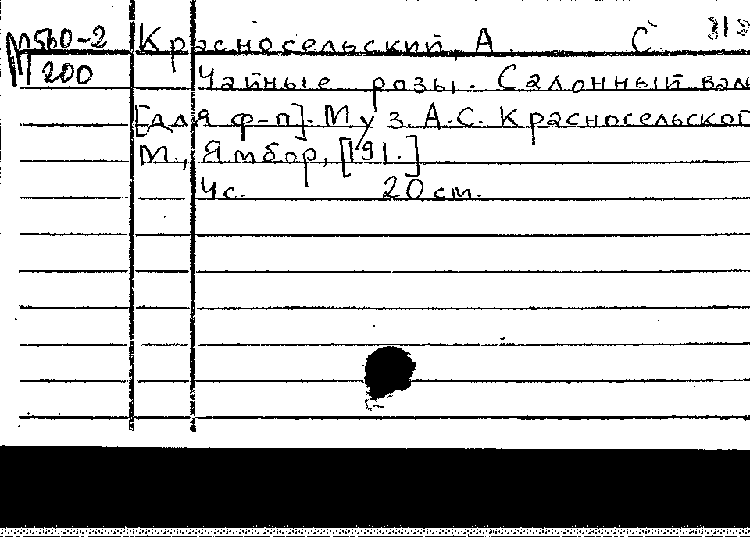 М560-2 Красносельский, А С
М 200 Чайные розы. Салонный вал
[для ф-п]. Муз. А.С. Красносельског
М., Ямбор, [191.]
4с. 20 см.